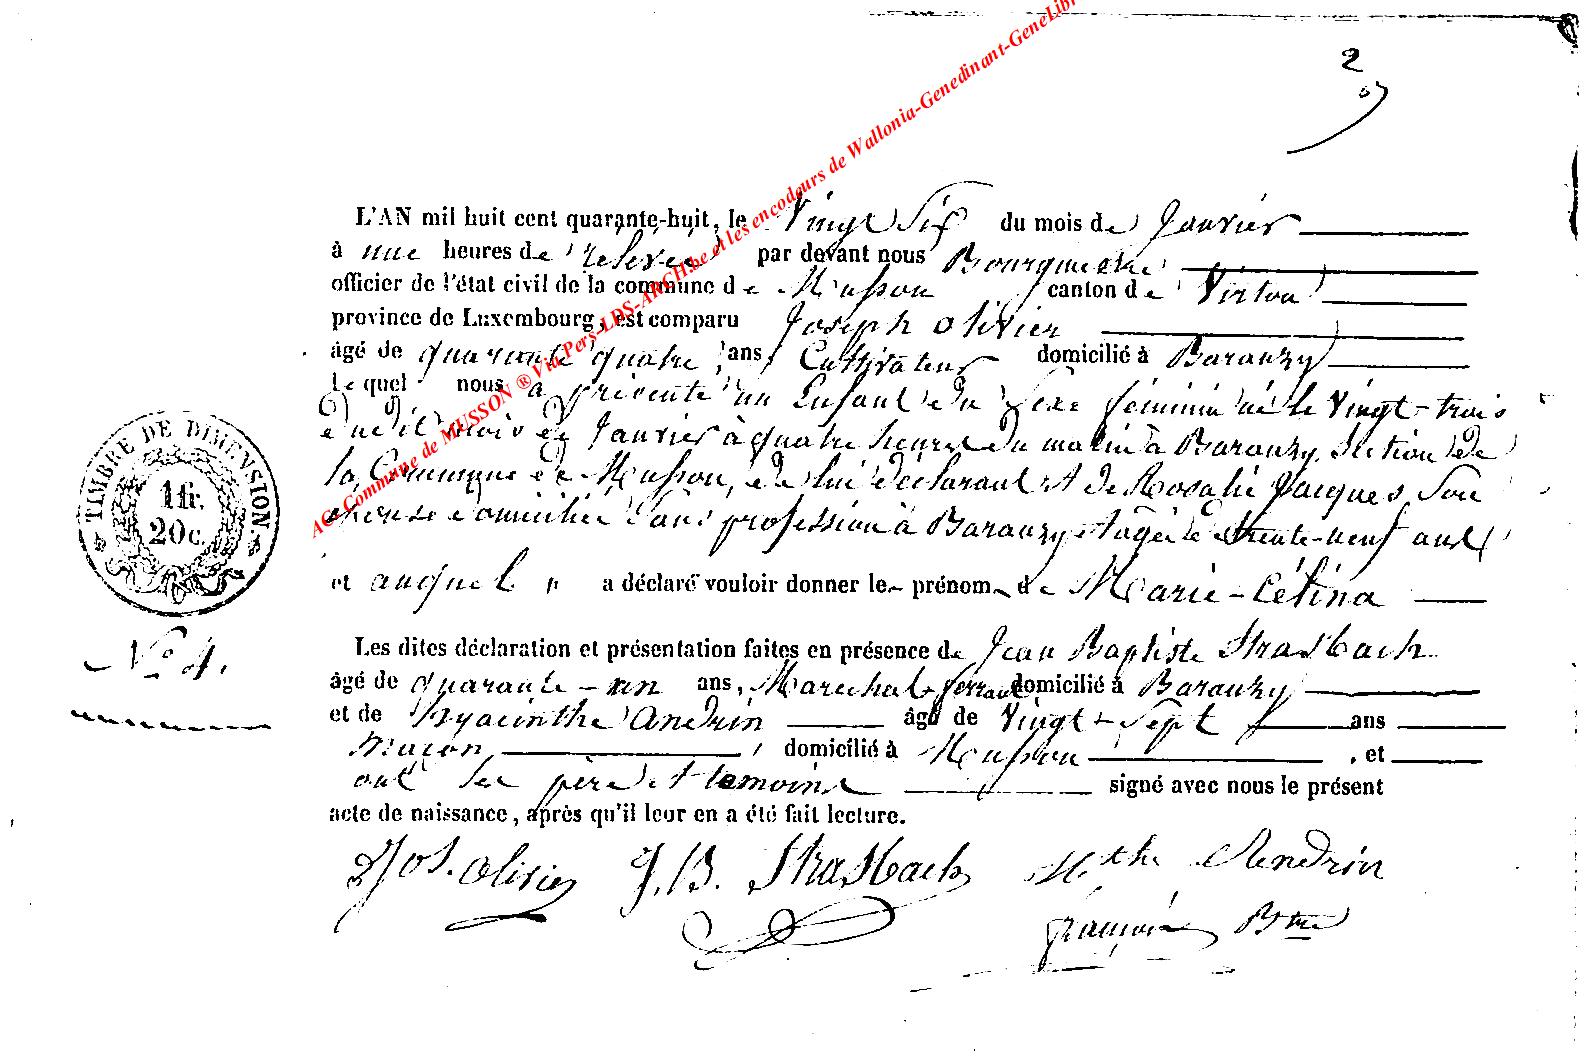 2
L'AN mil huit cent quarante-huit, le Vingt Six du mois de Janvier
à une heures de relevée par devant nous Bourgmestre
officier de l'état civil de la commune de Musson canton de Virton
province de Luxembourg, est comparu Joseph Olivier
âgé de quarante quatre ans, Cultivateur domicilié à Baranzy
Lequel nous a présenté un Enfant du Sexe féminin né le Vingt-trois
du dit mois de Janvier à quatre heures du matin à Baranzy, Section de
la Commune de Musson, de lui déclarant et de Rosalie Jacques Son
épouse domiciliée Sans profession à Baranzy et âgée de trente-neuf ans
et auquel il a déclaré vouloir donner le prénom de Marie-Célina
Les dites déclaration et présentation faites en présence de Jean Baptiste Strasbach
âgé de quarante-un ans, Maréchal-ferrant domicilié à Baranzy
et de hyacinthe Andrin âgé de Vingt-Sept ans
maçon, domicilié à Musson, et
ont les père et témoins signé avec nous le présent
acte de naissance, après qu'il leur en a été fait lecture.
Jos. Olivier J. B. Strasbach Hthe Andrin
François Btre
TIMBRE DE DIMENSION
1 fr.
20 c.
No 4.
AC Commune de MUSSON ® Via Pers-LDS-ARCH.be et les encodeurs de Wallonia-Genedinant-GeneLibr